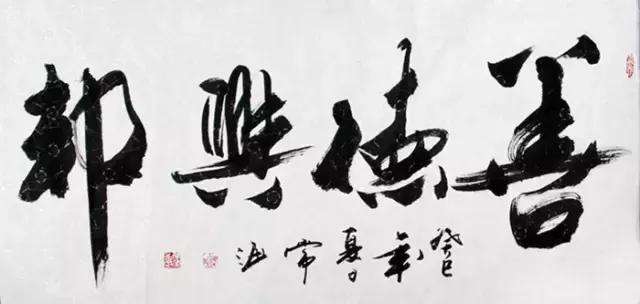 善德興邦
癸巳年夏日常